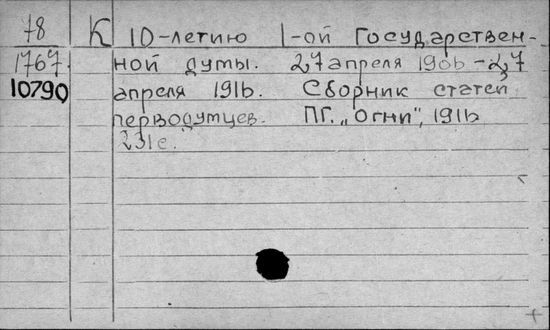 78 К 10-летию 1-ой Государствен-
1767 ной думы. 27 апреля 1906 - 27
10790 апреля 1916. Сборник статей
перводумцев. ПГ. „Огни", 1916
231с.